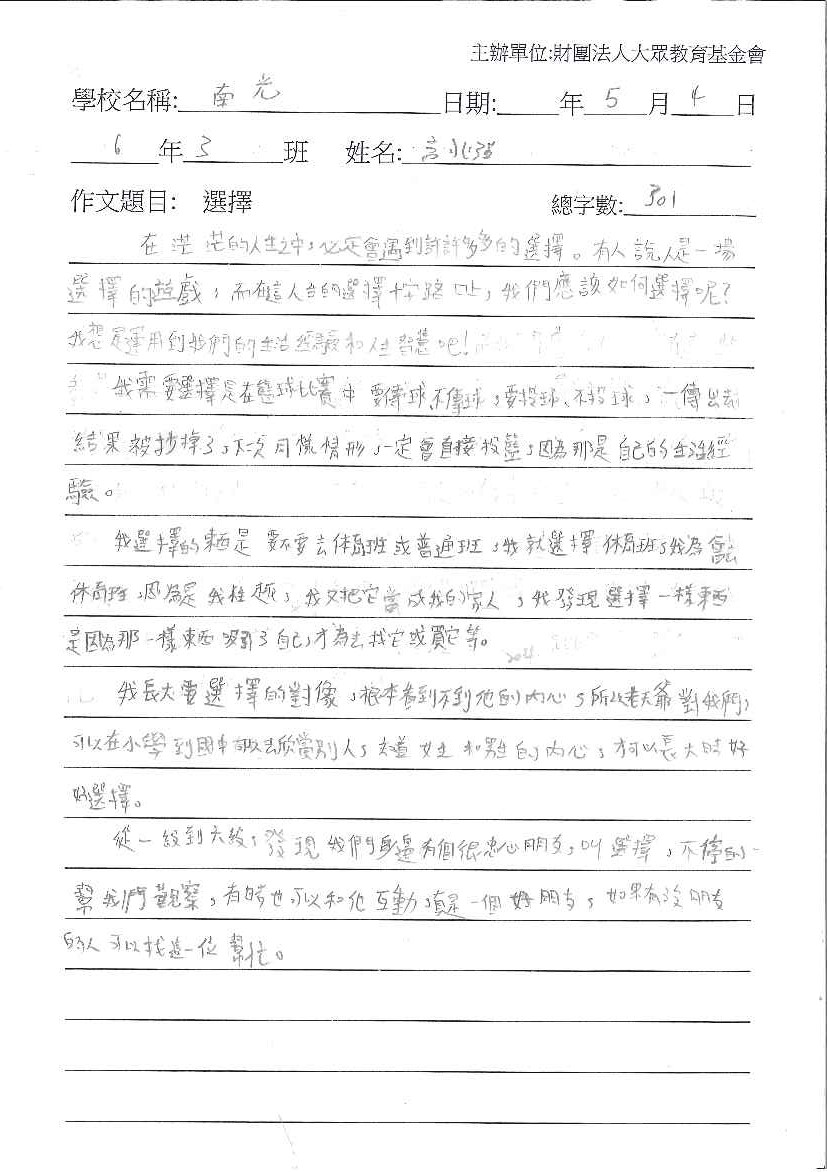 主辦單位:財團法人大眾教育基金會
學校名稱: 南光 日期: 年 5 月 4 日
6 年 3 班 姓名:
作文題目: 選擇 總字數: 301
在茫茫的人生之中,必定會遇到許許多多的選擇。有人說人是一場
選擇的遊戲,而在這人生的選擇十字路口上,我們應該如何選擇呢?
我想是運用到我們的生活經驗和人生智慧吧!
我需要選擇是在籃球比賽中要傳球、不傳球,要投球、不投球,一傳出去
結果被抄掉了,下次同樣情形,一定會直接投籃,因為那是自己的生活經
驗。
我選擇的東西是要不要去体育班或普通班,我就選擇体育班,我為會去
体育班,因為是我桂趣,我又把它當成我的家人,我發現選擇一樣東西
是因為那一樣東西吸引了自己,才為去找它或買它等。
我長大要選擇的對像,根本看到不到他的內心,所以老天爺對我們,
可以在小學到國中可以去欣賞別人,知道女生和男生的內心,才可以長大時好
好選擇。
從一級到六級,發現我們身邊有個很忠心朋友,叫選擇,不停的
幫我們觀察,有時也可以和他互動,真是一個好朋友,如果有沒朋友
的人可以找這一位幫忙。